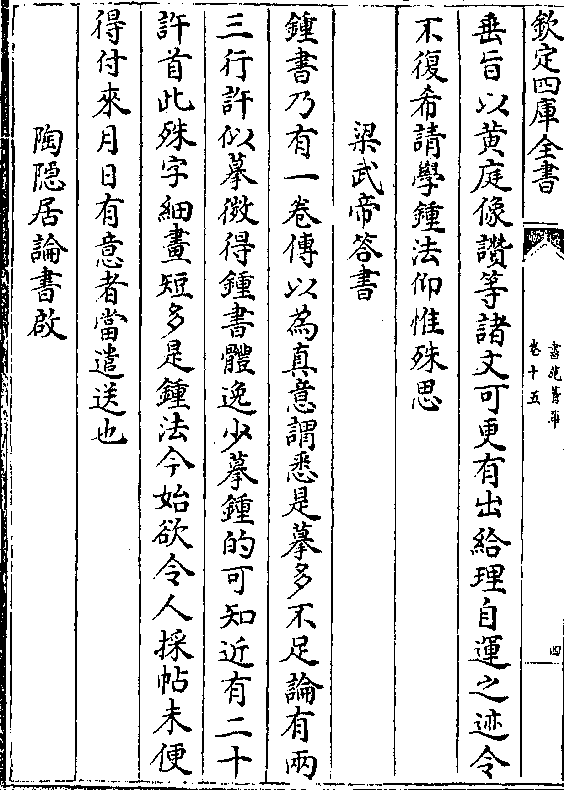 欽定四庫全書
書苑菁華
卷十五
四
垂旨以黄庭像讃等諸文可更有出給理自運之迹令
不復希請學鍾法仰惟殊思
梁武帝答書
鍾書乃有一卷傳以為真意謂悉是摹多不足論有兩
三行許似摹微得鍾書體逸少摹鍾的可知近有二十
許首此殊字細畫短多是鍾法今始欲令人採帖未便
得付來月日有意者當遣送也
陶隠居論書啟